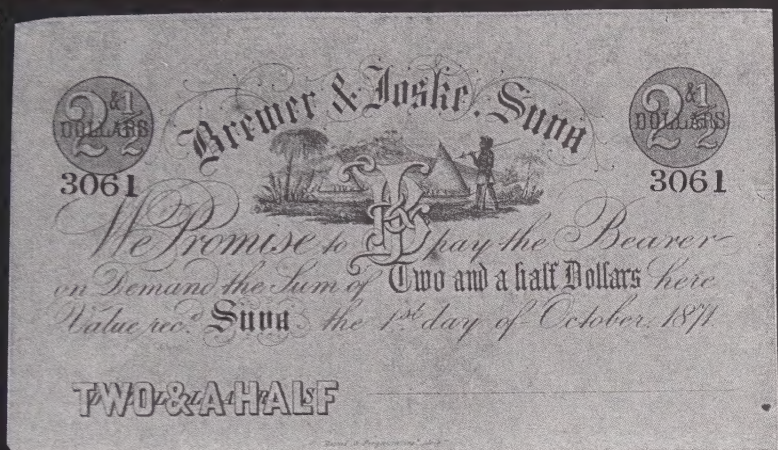 Brewer & Joske, Suva
2 & 1/2 DOLLARS
2 & 1/2 DOLLARS
3061
3061
We Promise to pay the Bearer
on Demand the Sum of Two and a half Dollars here
Value rec.d Suva the 1st day of October, 1871
TWO & A HALF